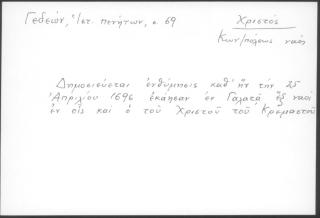 Γεδεών, Ἱστ. πενήτων, σ. 69
Χριστός
Κων/πόλεως ναός
Δημοσιεύεται ἐνθύμησις καθ' ἥν τήν 25
Ἀπριλίου 1696 ἐκάησαν ἐν Γαλατᾷ ἕξ ναοί
ἐν οἷς καί ὁ τοῦ Χριστοῦ τοῦ Κρεμαστοῦ